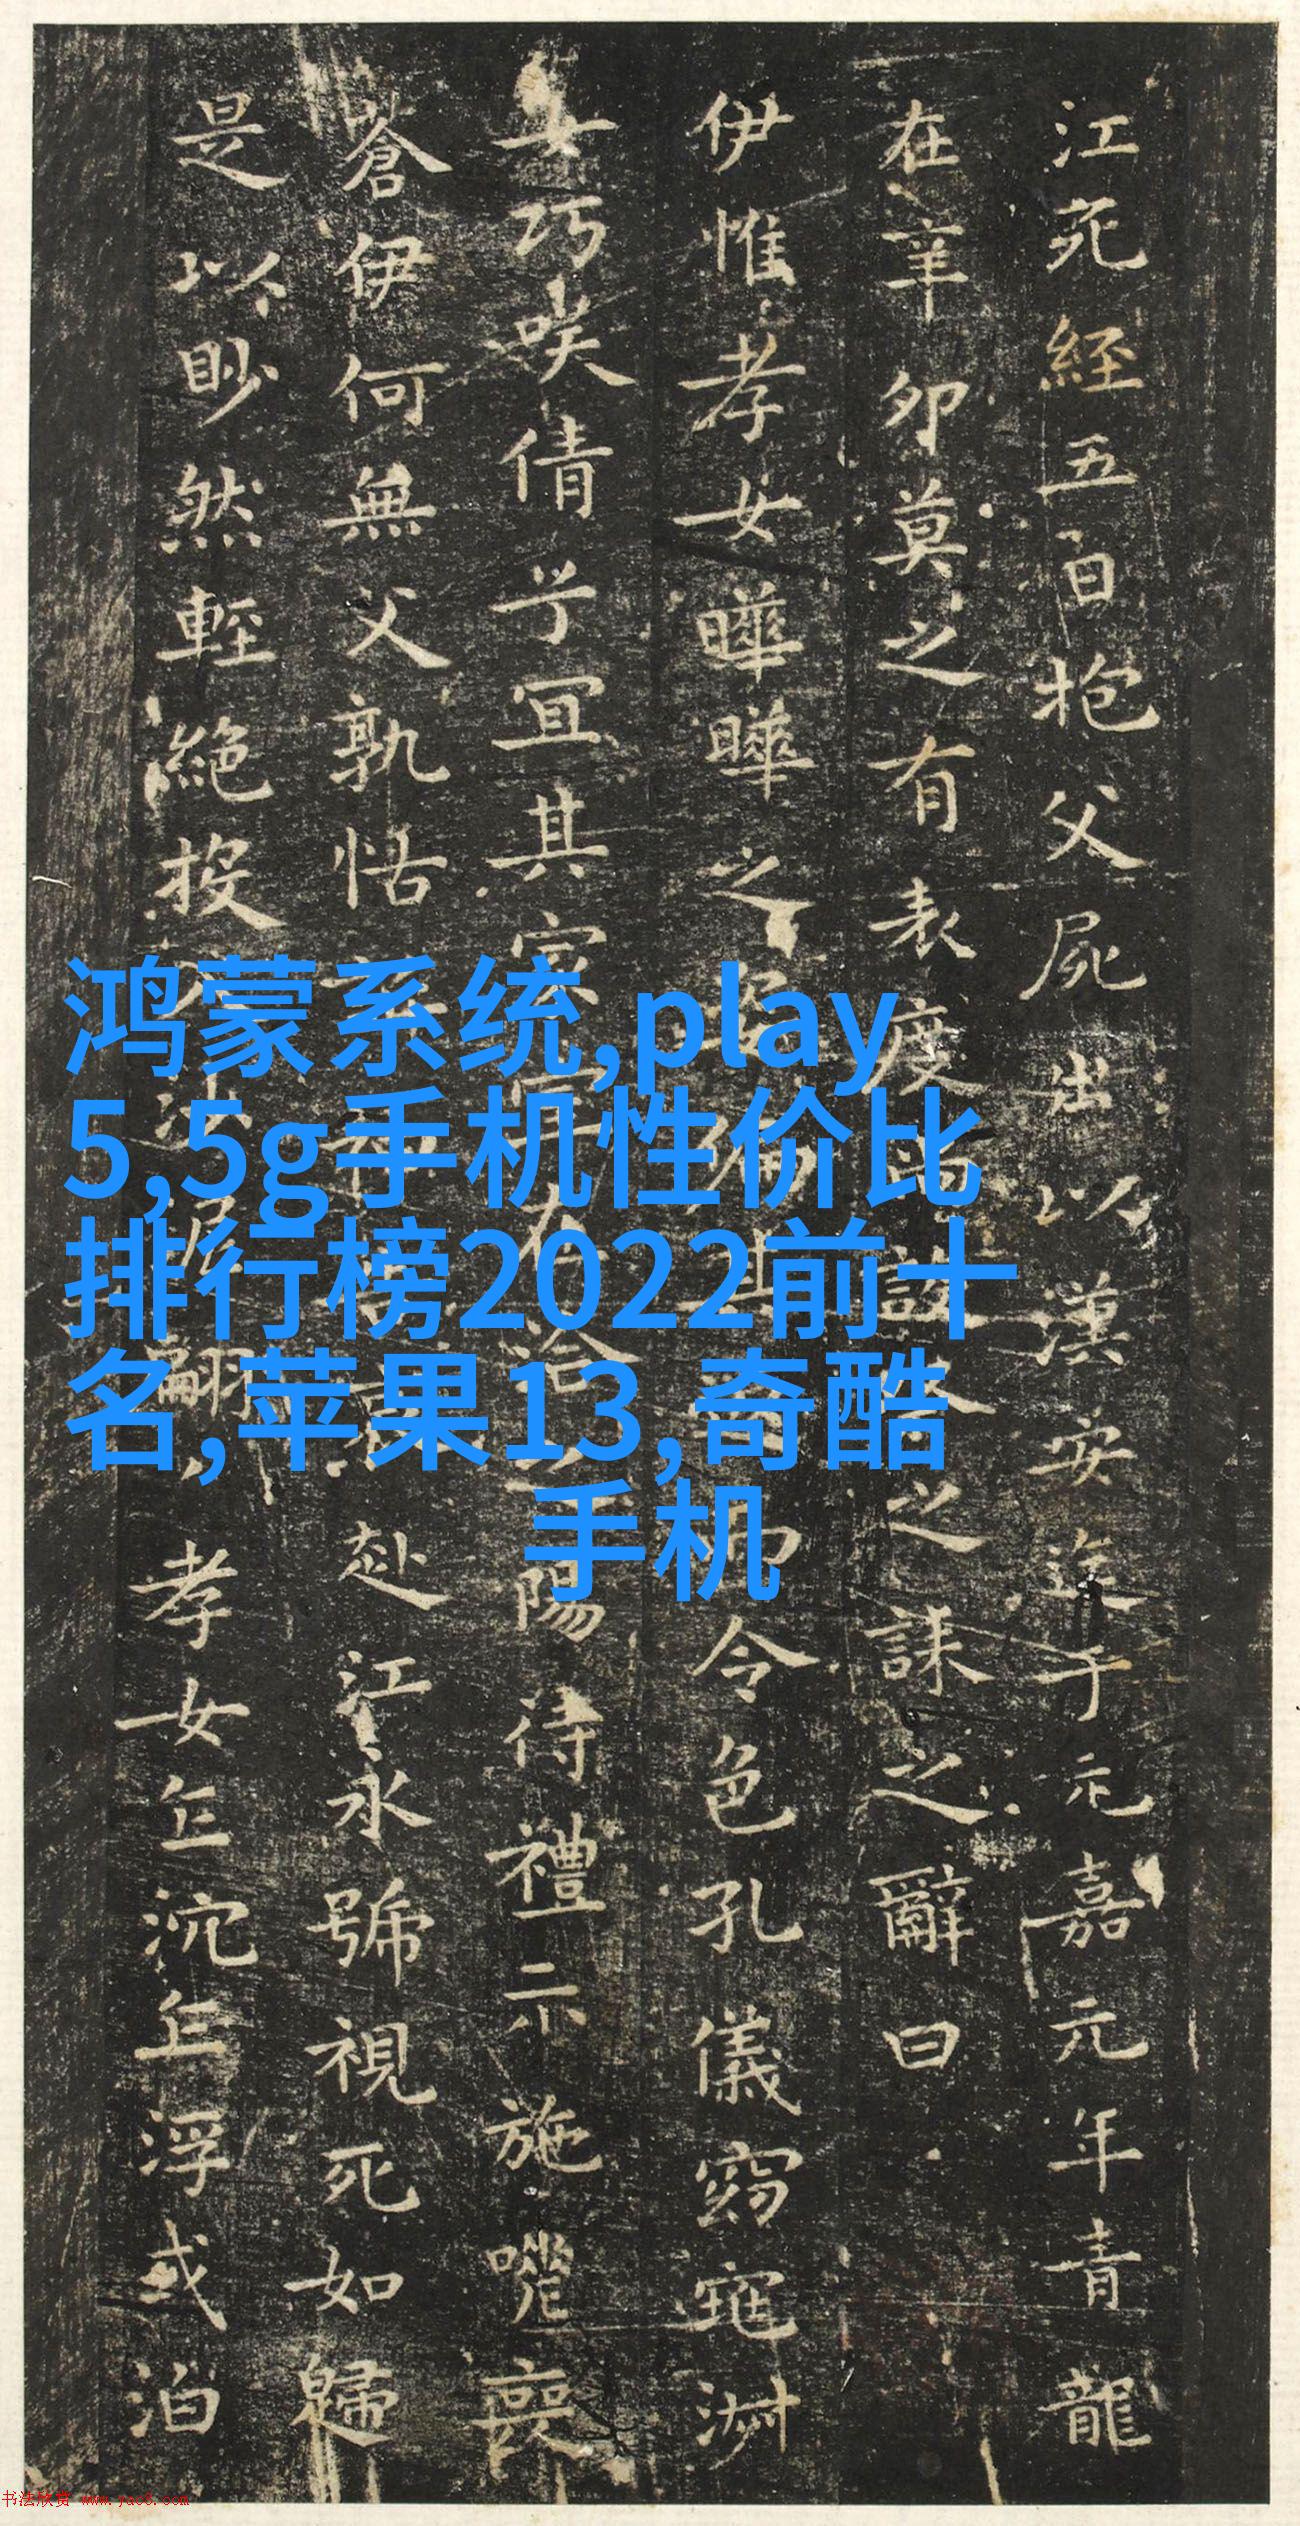 江死經五日抱父屍出以漢安迄于元嘉元年青龍
在辛卯莫之有表度尚設祭之誄之辭曰
伊惟孝女曄曄之姿偏其而令色孔儀窈窕淑
女巧咲倩兮宜其家室在洽陽待禮示施嗟喪
蒼伊何無父孰怙赴江永號視死如歸
是以眇然輕絕投沙泥翩孝女乍沉乍浮或泊
鸿蒙系统,play
5,5g手机性价比
排行榜2022前十
名,苹果13,奇酷
手机
书法欣赏 www.yac8.com